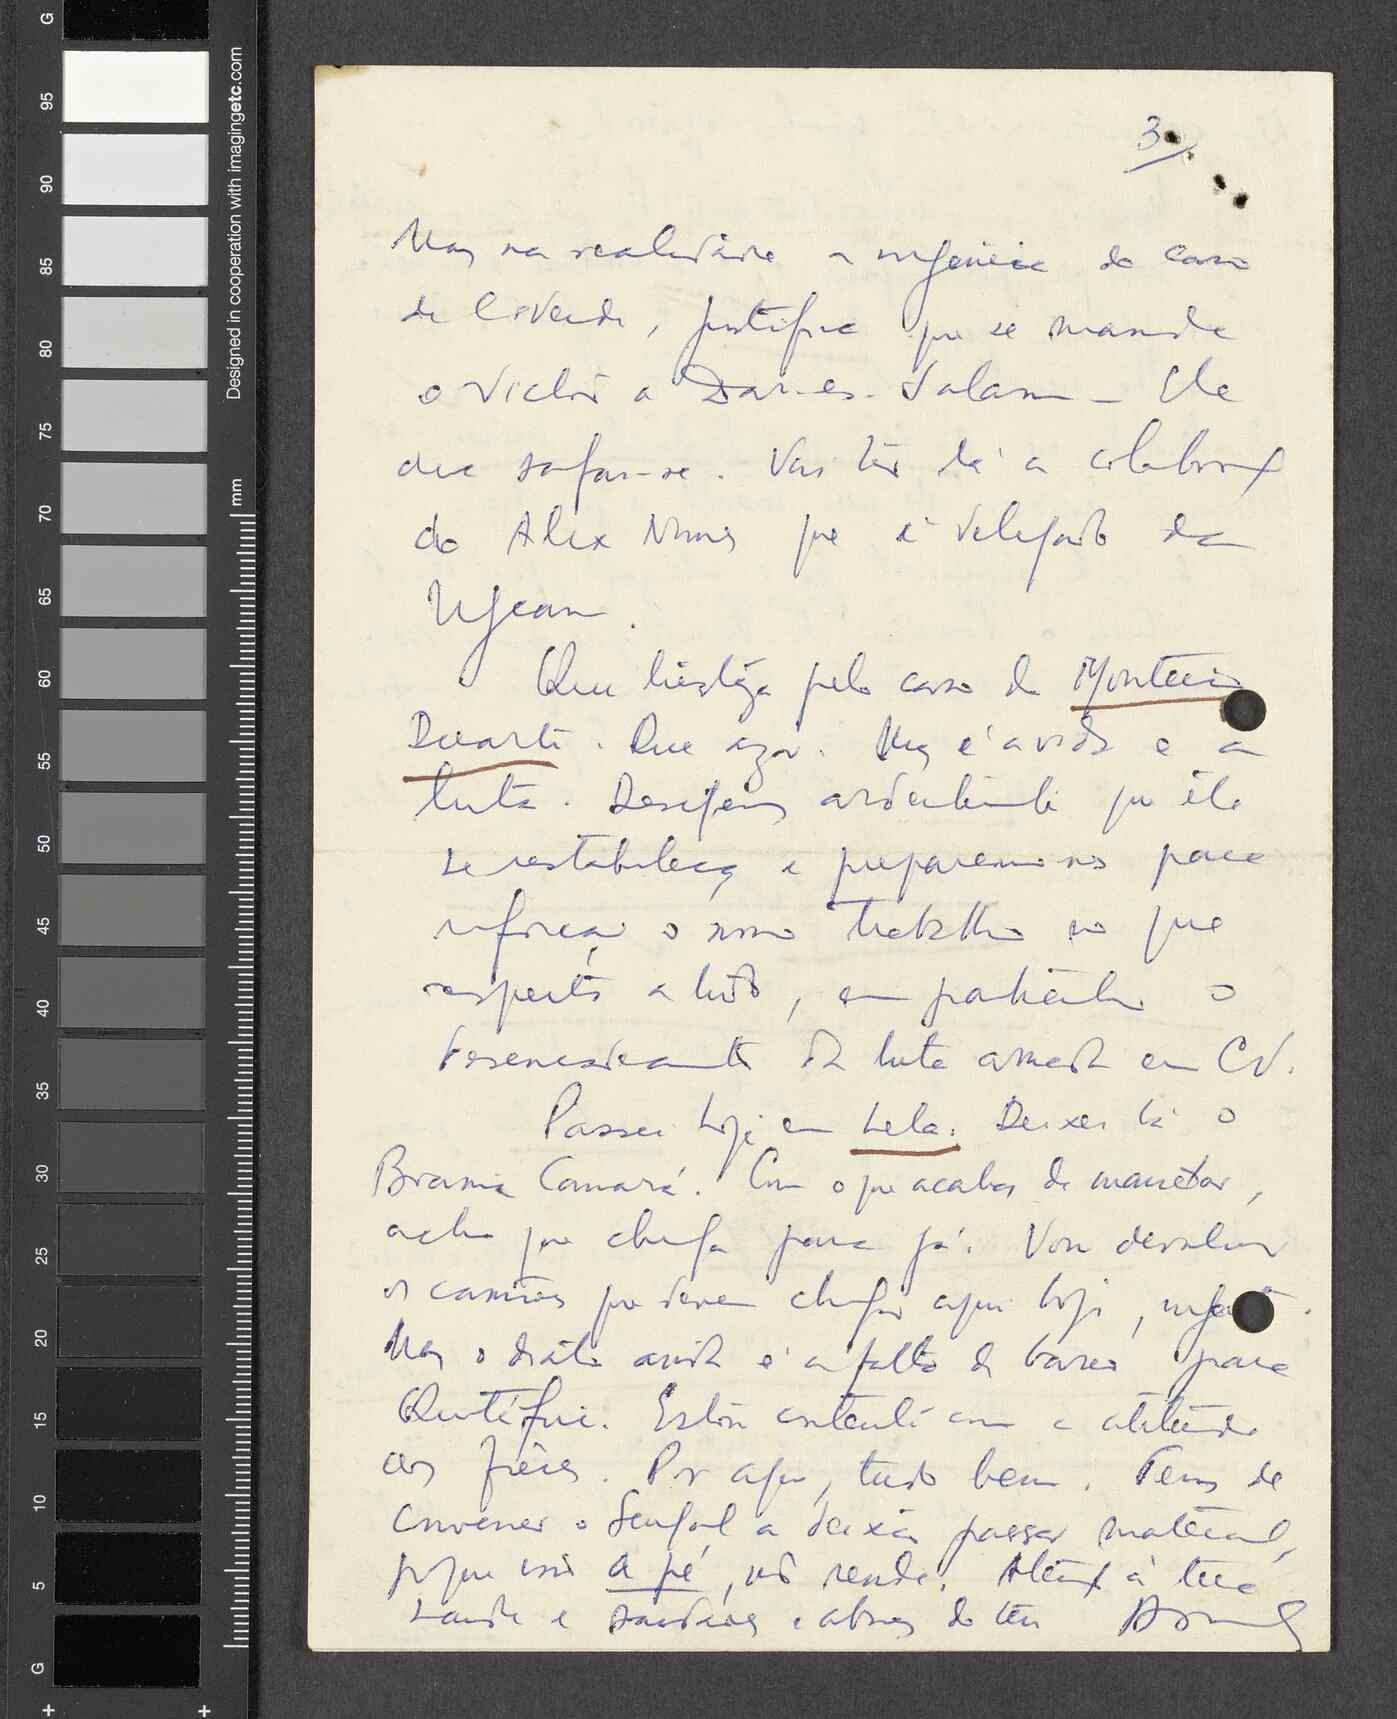 G
95
90
85
80
75
70
65
60
55
50
45
40
35
30
25
20
15
10
5
G
Designed in cooperation with imagingetc.com
mm
3.
Mas na realidade a urgência do caso
de C. Verde, justifica que se mande
o Victor a Dar-es-Salam — Ele
deve safar-se. Vai ter lá a colabora
do Alex Nunes que é delegado da
Ugean.
Que tristeza pelo caso do Monteiro
Duarte. Que azar. Mas é a vida e a
luta. Desejemos ardentemente que êle
se restabeleça e preparemo-nos para
reforçar o nosso trabalho no que
respeita a tudo, em particular o
desencadeamento da luta armada em CV.
Passei hoje em Lela. Deixei lá o
Braima Camará. Com o que acabas de mandar,
acho que chega para já. Vou devolver
os camiões que devem chegar aqui hoje,
Mas o diabo ainda é a falta de barco para
Quitáfine. Estou contente com a atitude
dos frères. Por aqui, tudo bem. Temos de
convencer o Senegal a deixar passar material,
porque isso a pé, não rende. Atenção à tua
saúde e saudades e abraços do teu